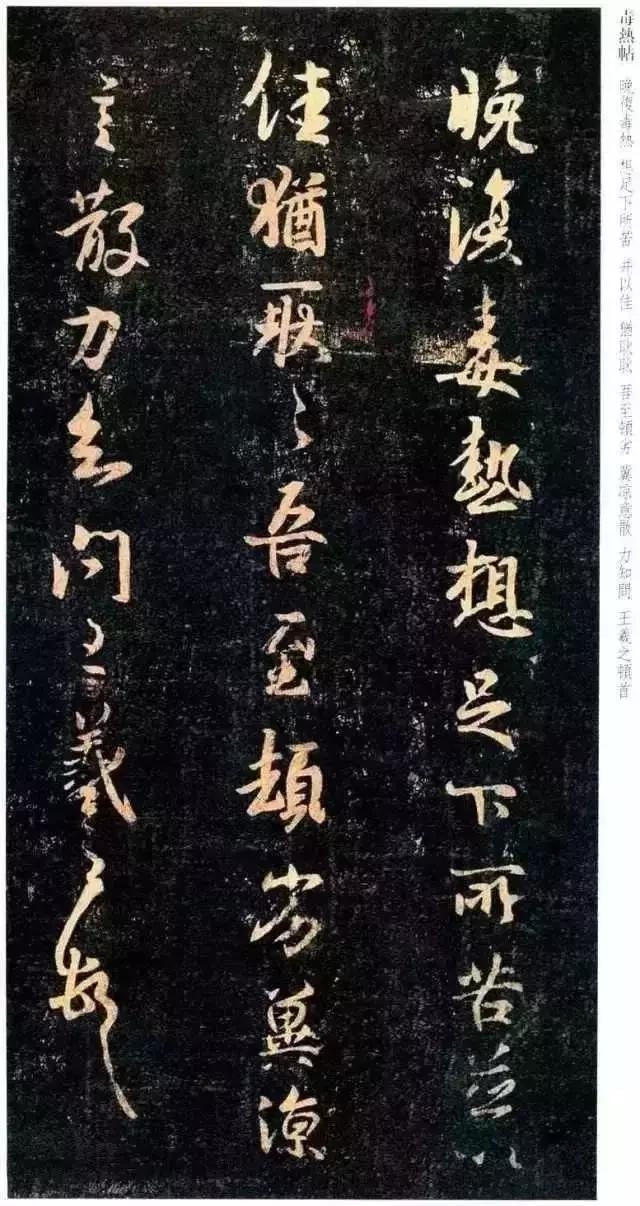 毒熱帖 晚復毒熱 想足下所苦 并以佳 猶耿耿 吾至頓劣 冀凉意散 力知問 王羲之頓首
晚復毒熱想足下所苦並以
佳猶耿〻吾至頓劣冀涼
言散力知問王羲之頓首